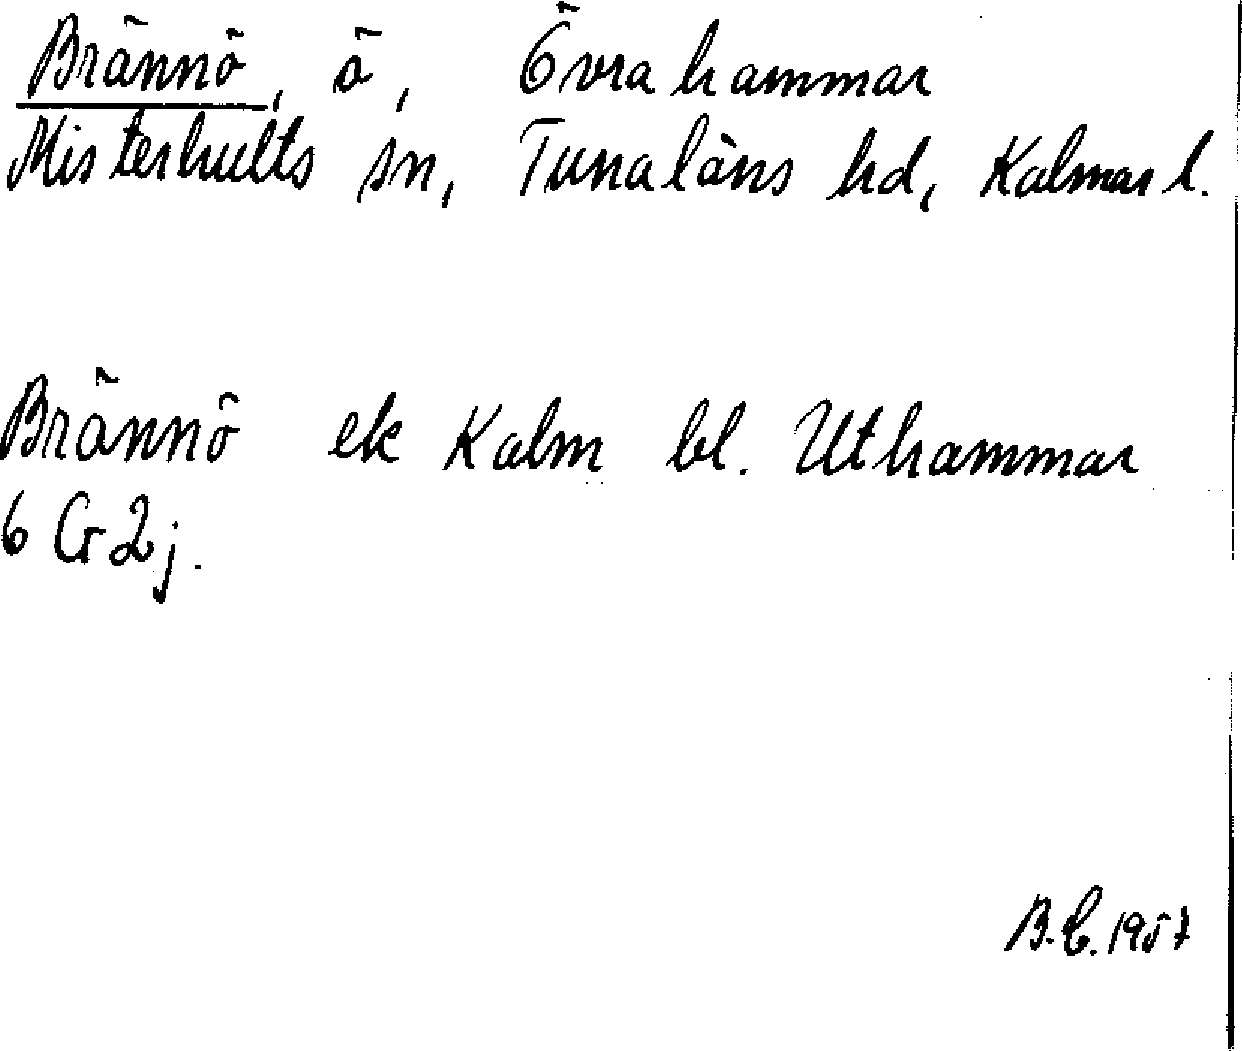 Brännö, ö, Övrahammar
Misterhults sn, Tunaläns hd, Kalmar l.
Brännö ek Kalm bl. Uthammar
6 G 2j.
B.C. 1957